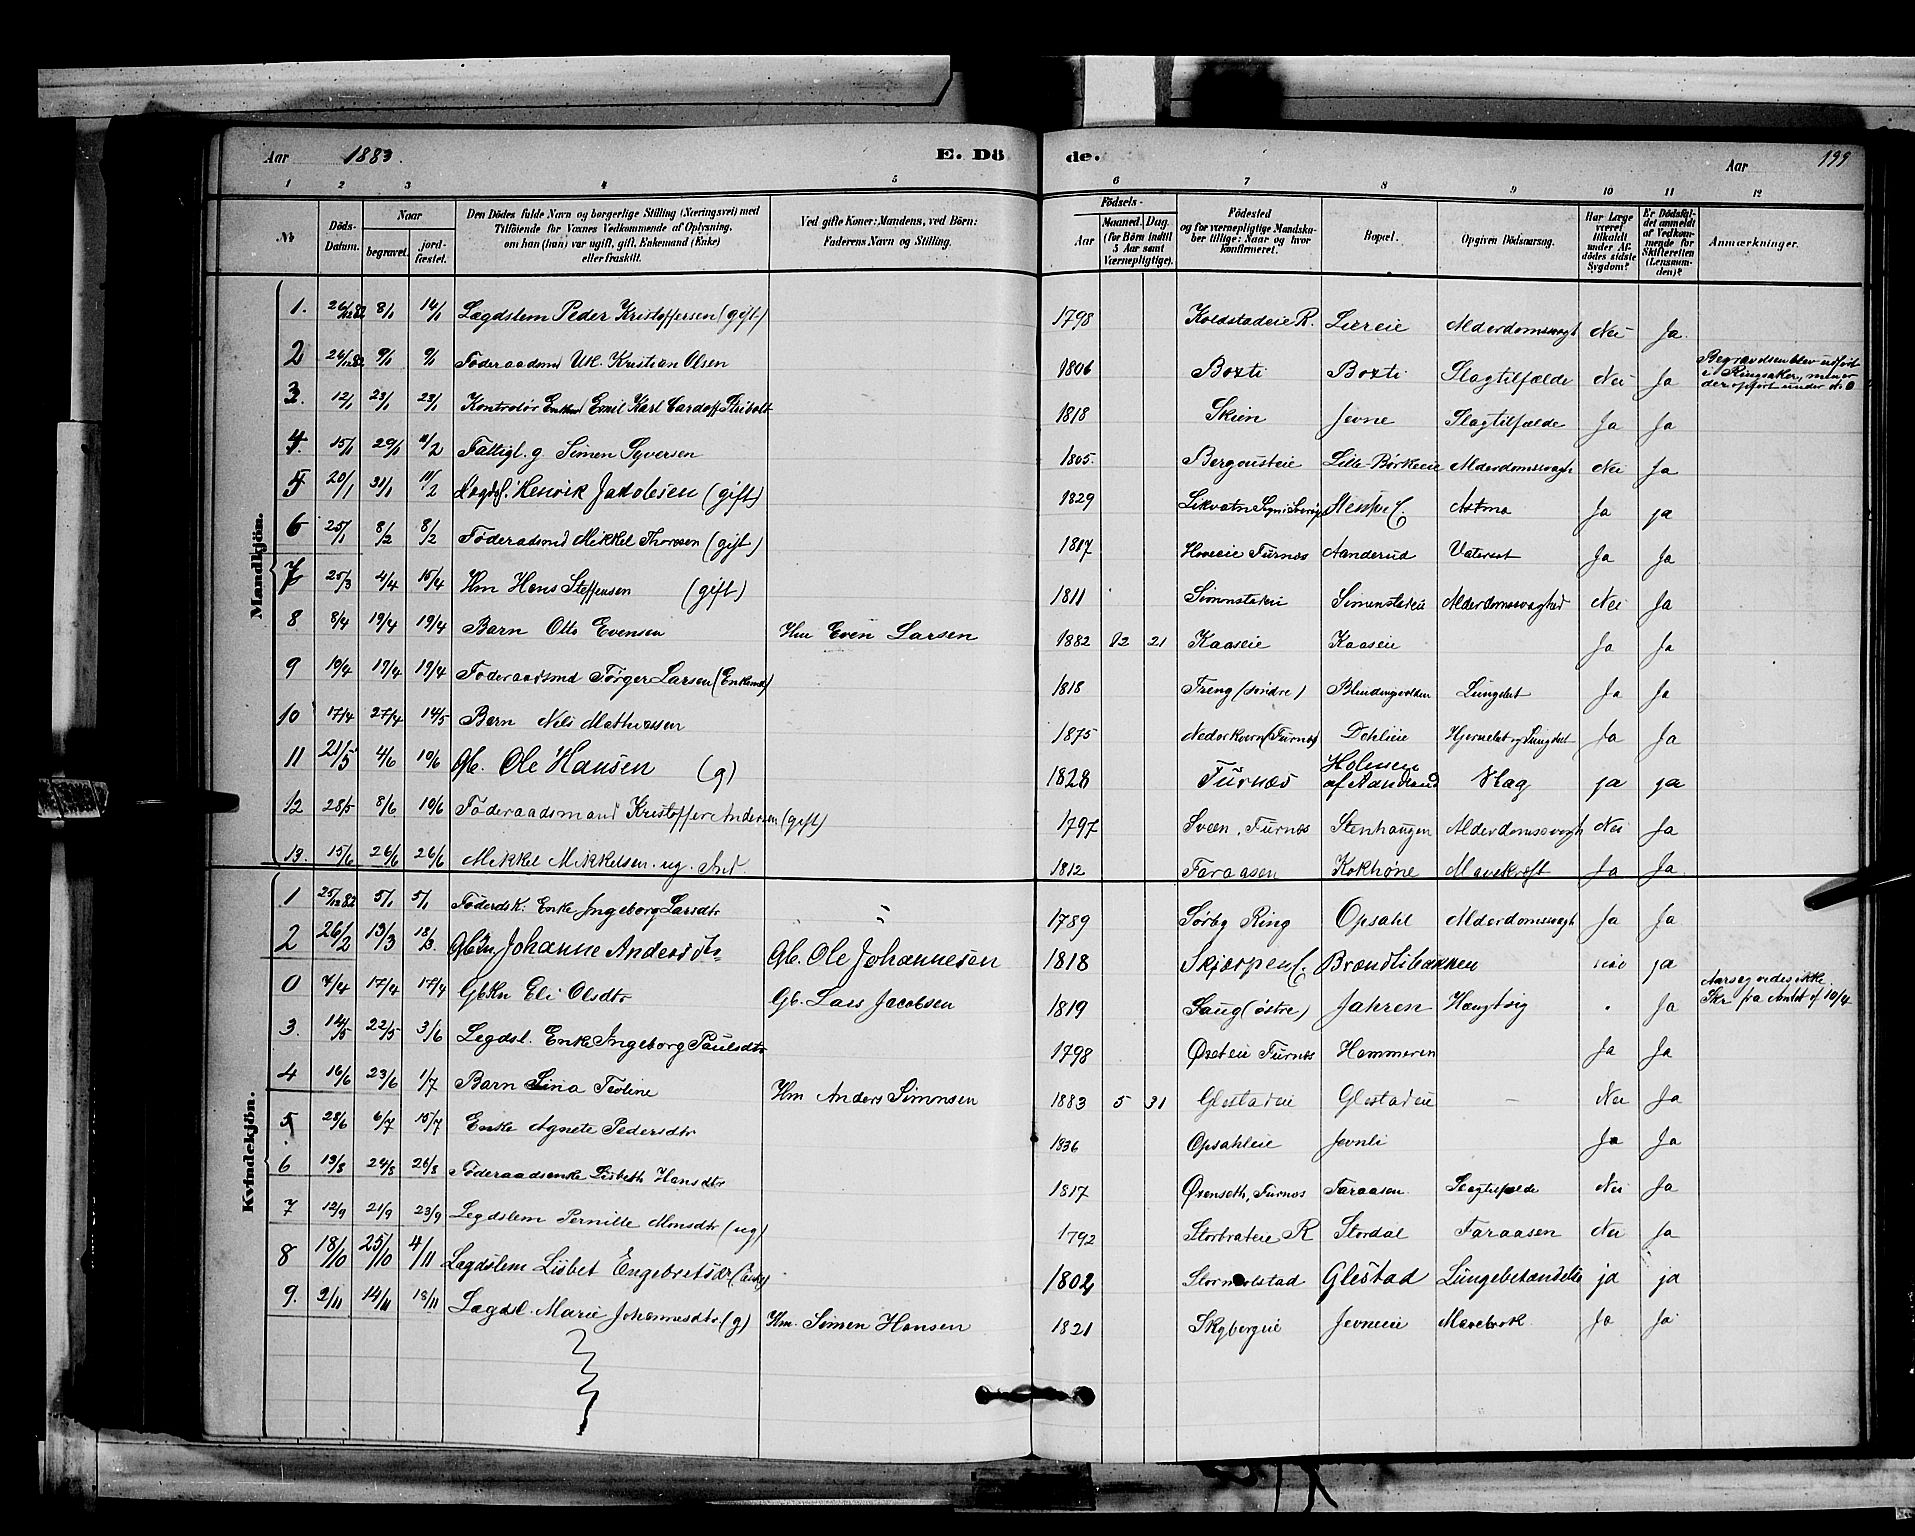 Aar 1883. E. Dö de. Aar 199
1 2 3 4 5 6 7 8 9 10 11 12
№ Döds-Datum. Naar begravet. jord-fæstet. Den Dödes fulde Navn og borgerlige Stilling (Næringsvei) med Tilföiende for Voxnes Vedkommende af Oplysning, om han (hun) var ugift, gift, Enkemand (Enke) eller fraskilt. Ved gifte Koner: Mandens, ved Börn: Faderens Navn og Stilling. Födsels- Aar Maaned. Dag. (for Börn indtil 5 Aar samt Værnepligtige). Födested og for værnepligtige Mandskaber tillige: Naar og hvor konfirmeret. Bopæl. Opgiven Dödsaarsag. Har Læge været tilkaldt under Afdödes sidste Sygdom? Er Dödsfaldet anmeldt af Vedkommende for Skifteretten (Lensmanden)? Anmærkninger.
Mandkjön.
1. 26/12 82 8/1 14/1 Lægdslem Peder Kristoffersen (gift) 1798 Koldstadeie R. Liereie Alderdomssvagh Nei Ja.
2 26/12 82 9/1 9/1 Föderaadsmd Kristian Olsen 1806 Boxti Boxti Slagtilfælde Nei Ja Begravelsen blev udfört i Ringsaker, men er der opfört under № 0
3. 12/1 23/1 23/1 Kontrolör Emil Karl 1818 Skien Jevne Slagtilfælde Ja Ja
4. 15/1 29/1 2/2 Fattigl. g Simen Syversen 1805. Bergousteie Lille-Börkeeie Alderdomssvagh Nei Ja
5 20/1 31/1 11/2 Lægdsl. Henrik Jakobsen (gift) 1829 Astma Ja ja
6 25/1 8/2 8/2 Föderaadsmd Mikkel Thoresen (gift) 1817 Hoveie Furnæs Aanderud Vatersot Ja Ja
7 25/3 4/4 15/4 Hm Hans Steffensen (gift) 1811 Simenstadeie Simenstadeie Alderdomssvaghed Nei Ja
8 8/4 19/4 19/4 Barn Otto Evensen Hm Even Larsen 1882 12 21 Kaaseie Kaaseie Ja Ja
9 10/4 17/4 19/4 Föderaadsmd Törger Larsen (Enkemd) 1818 Freng (söndre) Lungebet Ja Ja
10 17/4 27/4 14/5 Barn Nils Mathiassen 1875 Nederkvern (Furnæs) Dehlieie Hjernebet og Lungebet Ja Ja
11 21/5 4/6 10/6 Gb. Ole Hansen (g) 1828 Furnæs Holmen af Aanderud Slag ja ja
12 28/5 8/6 10/6 Föderaadsmand Kristoffer Andersen (gift) 1797 Sveen, Furnæs Stenhaugen Alderdomssvagh Nei Ja
13. 15/6 26/6 26/6 Mikkel Mikkelsen. ug. 1812 Faraasen Kokhöne Mavekræft Ja Ja.
Kvindekjön.
1 25/12 82 5/1 5/1 Föderdsk. Enke Ingeborg Larsdtr " 1789 Sörby Ring Opsahl Alderdomssvagh Ja Ja
2 26/2 13/3 18/3 Gbkn Johanne Andersdtr Gb. Ole Johannesen 1818 Skjærpen Brændlibakken nei ja
0 7/4 17/4 17/4 GbKn Eli Olsdtr Gb. Lars Jacobsen 1819 Saug (östre) Jahren Hængt sig " Ja Skr fra Amtet af 10/4
3. 14/5 22/5 3/6 Legdsl. Enke Ingeborg Paulsdtr 1798 Öxeteie Furnæs Hammeren Ja Ja
4 16/6 23/6 1/7 Barn Lina Teoline Hm Anders Simensen 1883 5 31 Glestadeie Glestadeie – Nei Ja
5 28/6 6/7 15/7 Enke Agnete Pedersdtr 1836 Opsahleie Jevnli Ja Ja
6 13/8 24/8 26/8 Föderaadsenke Lisbeth Hansdtr 1817 Öxenseth, Furnæs Faraasen Slagtilfælde Nei Ja
7 12/9 21/9 23/9 Legdslem Pernille Monsdtr (ug) 1792 Storbrateie R Stordal Faraasen Nei Ja
8 18/10 25/10 4/11 Lægdslem Lisbet Engebretsdr (Enke) 1802 Stormolstad Glestad Lungebetændelse ja ja
9. 2/11 14/11 18/11 Lægdsl. Marie Johannesdtr (g) Hm. Simen Hansen 1821 Skybergeie Jevneeie Ja Ja